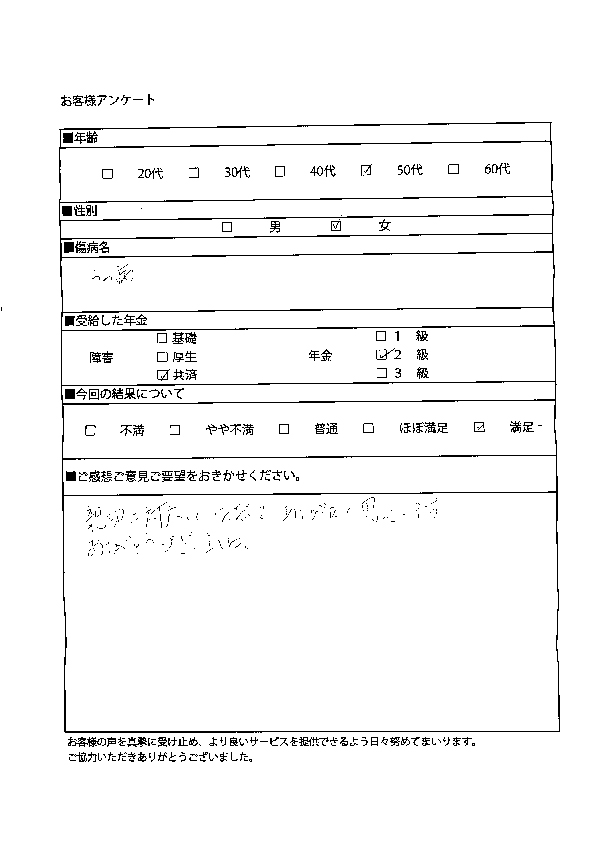 お客様アンケート
■年齢
□ 20代 □ 30代 □ 40代 ☑ 50代 □ 60代
■性別
□ 男 ☑ 女
■傷病名
うつ病
■受給した年金
障害 □ 基礎 □ 厚生 ☑ 共済 年金 □ 1 級 ☑ 2 級 □ 3 級
■今回の結果について
□ 不満 □ やや不満 □ 普通 □ ほぼ満足 ☑ 満足
■ご感想ご意見ご要望をおきかせください。
親切に 思って
ありがとうございました。
お客様の声を真摯に受け止め、より良いサービスを提供できるよう日々努めてまいります。
ご協力いただきありがとうございました。